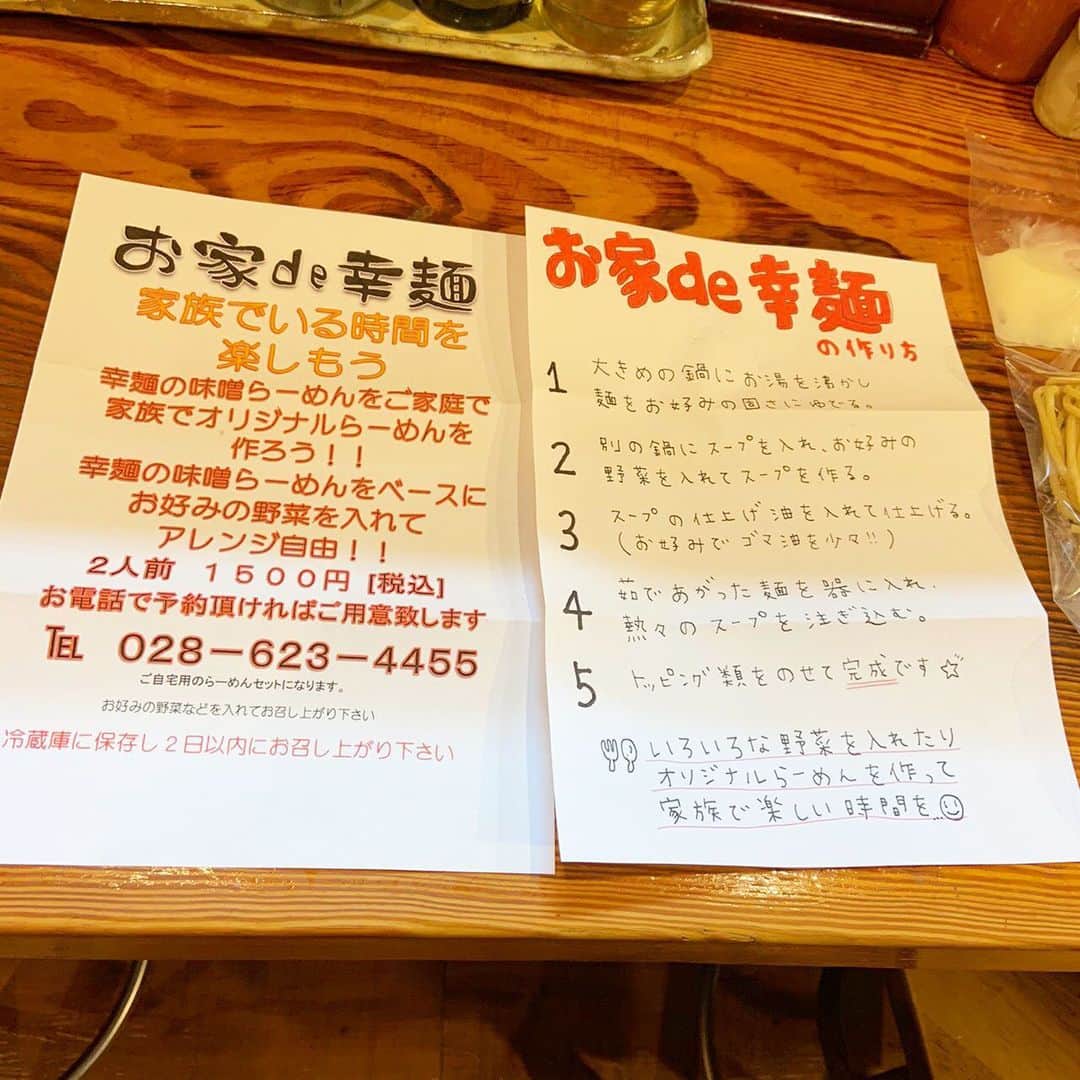 お家de幸麺
家族でいる時間を
楽しもう
幸麺の味噌らーめんをご家庭で
家族でオリジナルらーめんを
作ろう！！
幸麺の味噌らーめんをベースに
お好みの野菜を入れて
アレンジ自由！！
２人前 １５００円 [税込]
お電話で予約頂ければご用意致します
℡ 028－623－4455
ご自宅用のらーめんセットになります。
お好みの野菜などを入れてお召し上がり下さい
冷蔵庫に保存し２日以内にお召し上がり下さい
お家de幸麺
の作り方
1 大きめの鍋にお湯を沸かし
麺をお好みの固さにゆでる。
2 別の鍋にスープを入れ、お好みの
野菜を入れてスープを作る。
3 スープの仕上げ油を入れて仕上げる。
(お好みでゴマ油を少々!!)
4 茹であがった麺を器に入れ、
熱々のスープを注ぎ込む。
5 トッピング類をのせて完成です☆
いろいろな野菜を入れたり
オリジナルらーめんを作って
家族で楽しい時間を…